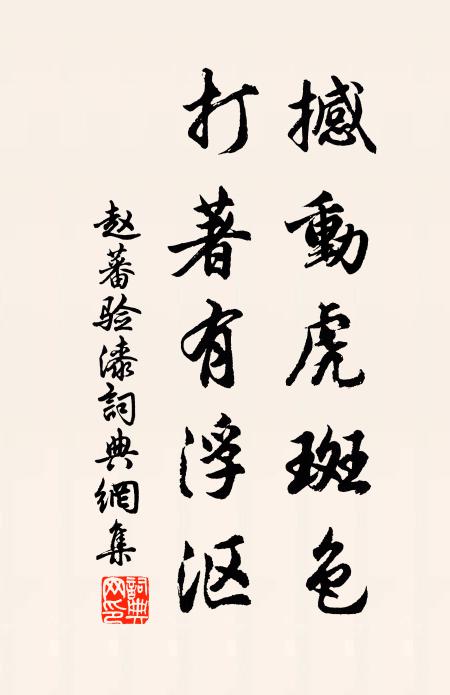 撼動虎斑色
打著有浮沤
赵蕃验漆詞典網集
詞典网印